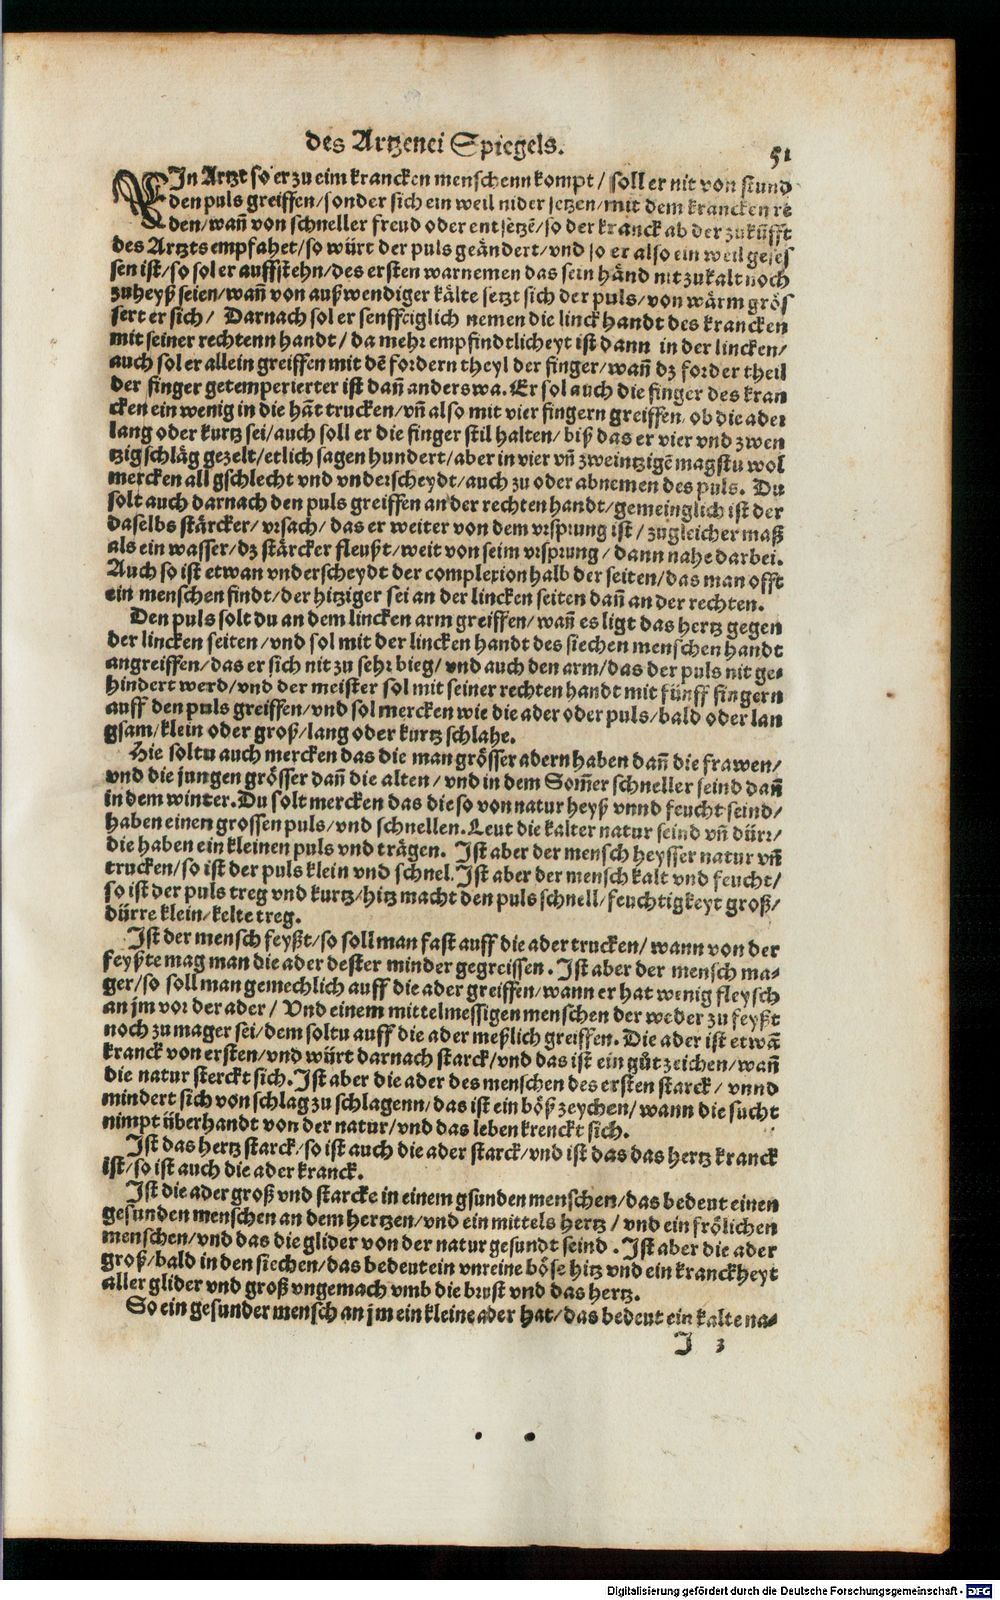 des Artzenei Spiegels.
51
EIn Artzt so er zu eim krancken menschenn kompt / soll er nit von stund
den puls greiffen / sonder sich ein weil nider setzen / mit dem krancken re
den / wañ von schneller freud oder entsetzẽ / so der kranck ab der zukũfft
des Artzts empfahet / so würt der puls geändert / vnd so er also ein weil geses
sen ist / so sol er auffstehn / des ersten warnemen das sein händ nit zukalt noch
zuheyß seien / wañ von außwendiger kälte setzt sich der puls / von wärm grös
sert er sich / Darnach sol er senfftiglich nemen die linck handt des krancken
mit seiner rechtenn handt / da mehr empfindtlicheyt ist dann in der lincken /
auch sol er allein greiffen mit dẽ fordern theyl der finger / wañ dz forder theil
der finger getemperierter ist dañ anderswa. Er sol auch die finger des kran
cken ein wenig in die hãt trucken / vñ also mit vier fingern greiffen / ob die ader
lang oder kurtz sei / auch soll er die finger stil halten / biß das er vier vnd zwen
tzig schläg gezelt / etlich sagen hundert / aber in vier vñ zweintzigẽ magstu wol
mercken all gschlecht vnd vnderscheydt / auch zu oder abnemen des puls. Du
solt auch darnach den puls greiffen an der rechten handt / gemeinglich ist der
daselbs stärcker / vrsach / das er weiter von dem vrsprung ist / zugleicher maß
als ein wasser / dz stärcker fleußt / weit von seim vrsprung / dann nahe darbei.
Auch so ist etwan vnderscheydt der complexion halb der seiten / das man offt
ein menschen findt / der hitziger sei an der lincken seiten dañ an der rechten.
Den puls solt du an dem lincken arm greiffen / wañ es ligt das hertz gegen
der lincken seiten / vnd sol mit der lincken handt des siechen menschen handt
angreiffen / das er sich nit zu sehr bieg / vnd auch den arm / das der puls nit ge-
hindert werd / vnd der meister sol mit seiner rechten handt mit fünff fingern
auff den puls greiffen / vnd sol mercken wie die ader oder puls / bald oder lan
gsam / klein oder groß / lang oder kurtz schlahe.
Hie soltu auch mercken das die man grösser adern haben dañ die frawen /
vnd die jungen grösser dañ die alten / vnd in dem Som̃er schneller seind dañ
in dem winter. Du solt mercken das die so von natur heyß vnnd feucht seind /
haben einen grossen puls / vnd schnellen. Leut die kalter natur seind vñ dürr /
die haben ein kleinen puls vnd trägen. Ist aber der mensch heysser natur vñ
trucken / so ist der puls klein vnd schnel. Ist aber der mensch kalt vnd feucht /
so ist der puls treg vnd kurtz / hitz macht den puls schnell / feuchtigkeyt groß /
dürre klein / kelte treg.
Ist der mensch feyßt / so soll man fast auff die ader trucken / wann von der
feyßte mag man die ader dester minder gegreiffen. Ist aber der mensch ma-
ger / so soll man gemechlich auff die ader greiffen / wann er hat wenig fleysch
an jm vor der ader / Vnd einem mittelmessigen menschen der weder zu feyßt
noch zu mager sei / dem soltu auff die ader meßlich greiffen. Die ader ist etwã
kranck von ersten / vnd würt darnach starck / vnd das ist ein gůt zeichen / wañ
die natur sterckt sich. Ist aber die ader des menschen des ersten starck / vnnd
mindert sich von schlag zu schlagenn / das ist ein böß zeychen / wann die sucht
nimpt überhandt von der natur / vnd das leben krenckt sich.
Ist das hertz starck / so ist auch die ader starck / vnd ist das das hertz kranck
ist / so ist auch die ader kranck.
Ist die ader groß vnd starcke in einem gsunden menschen / das bedeut einen
gesunden menschen an dem hertzen / vnd ein mittels hertz / vnd ein frölichen
menschen / vnd das die glider von der natur gesundt seind . Ist aber die ader
groß / bald in den siechen / das bedeut ein vnreine böse hitz vnd ein kranckheyt
aller glider vnd groß vngemach vmb die brust vnd das hertz.
So ein gesunder mensch an jm ein kleine ader hat / das bedeut ein kalte na-
J 3
Digitalisierung gefördert durch die Deutsche Forschungsgemeinschaft - DFG